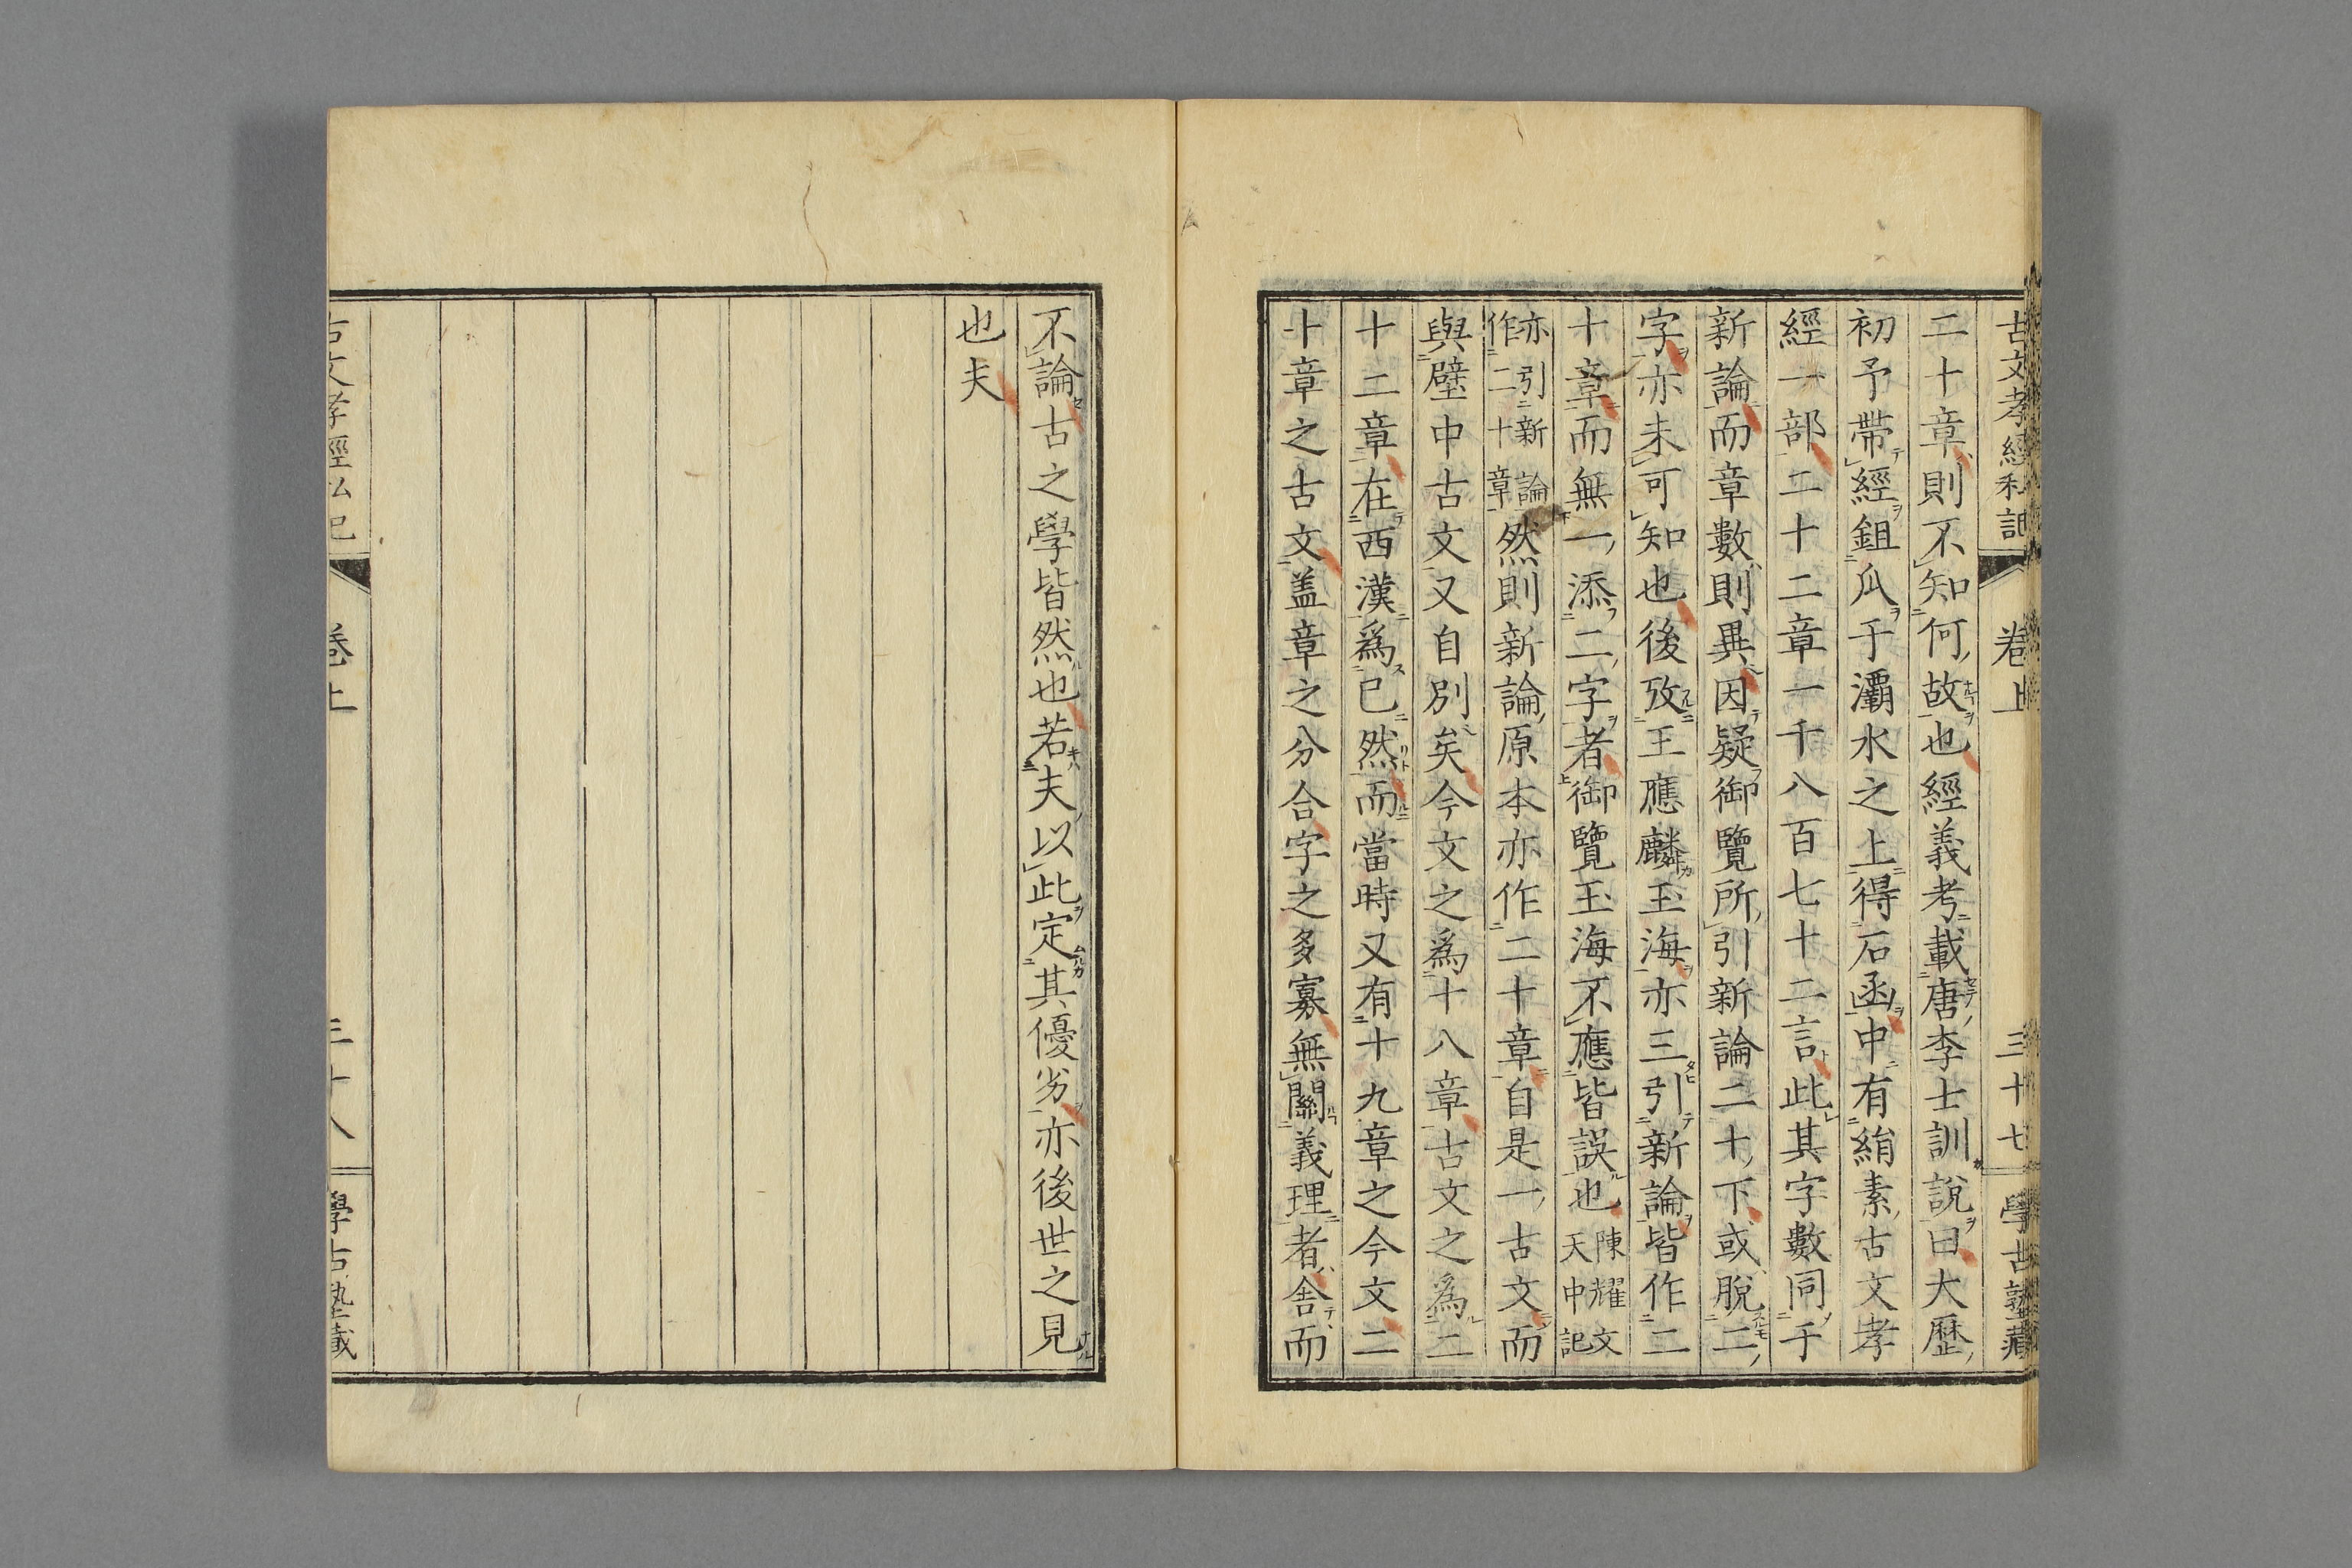 古文孝經私記 卷上 三十七 學古塾藏
二十章則不知何故也經義考載唐李士訓說曰大歷
初予帶經鉏瓜于灞水之上得石函中有絹素古文孝
經一部二十二章一千八百七十二言此其字數同于
新論而章數則異因疑御覽所引新論二十下或脫二
字亦未可知也後攷王應麟玉海亦三引新論皆作二
十章而無一添二字者御覽玉海不應皆誤也陳耀文天中記
亦引新論作二十章然則新論原本亦作二十章自是一古文而
與壁中古文又自別矣今文之爲十八章古文之爲二
十二章在西漢爲已然而當時又有十九章之今文二
十章之古文盖章之分合字之多寡無關義理者舍而
不論古之學皆然也若夫以此定其優劣亦後世之見
也夫
古文孝經私記 卷上 三十八 學古塾藏